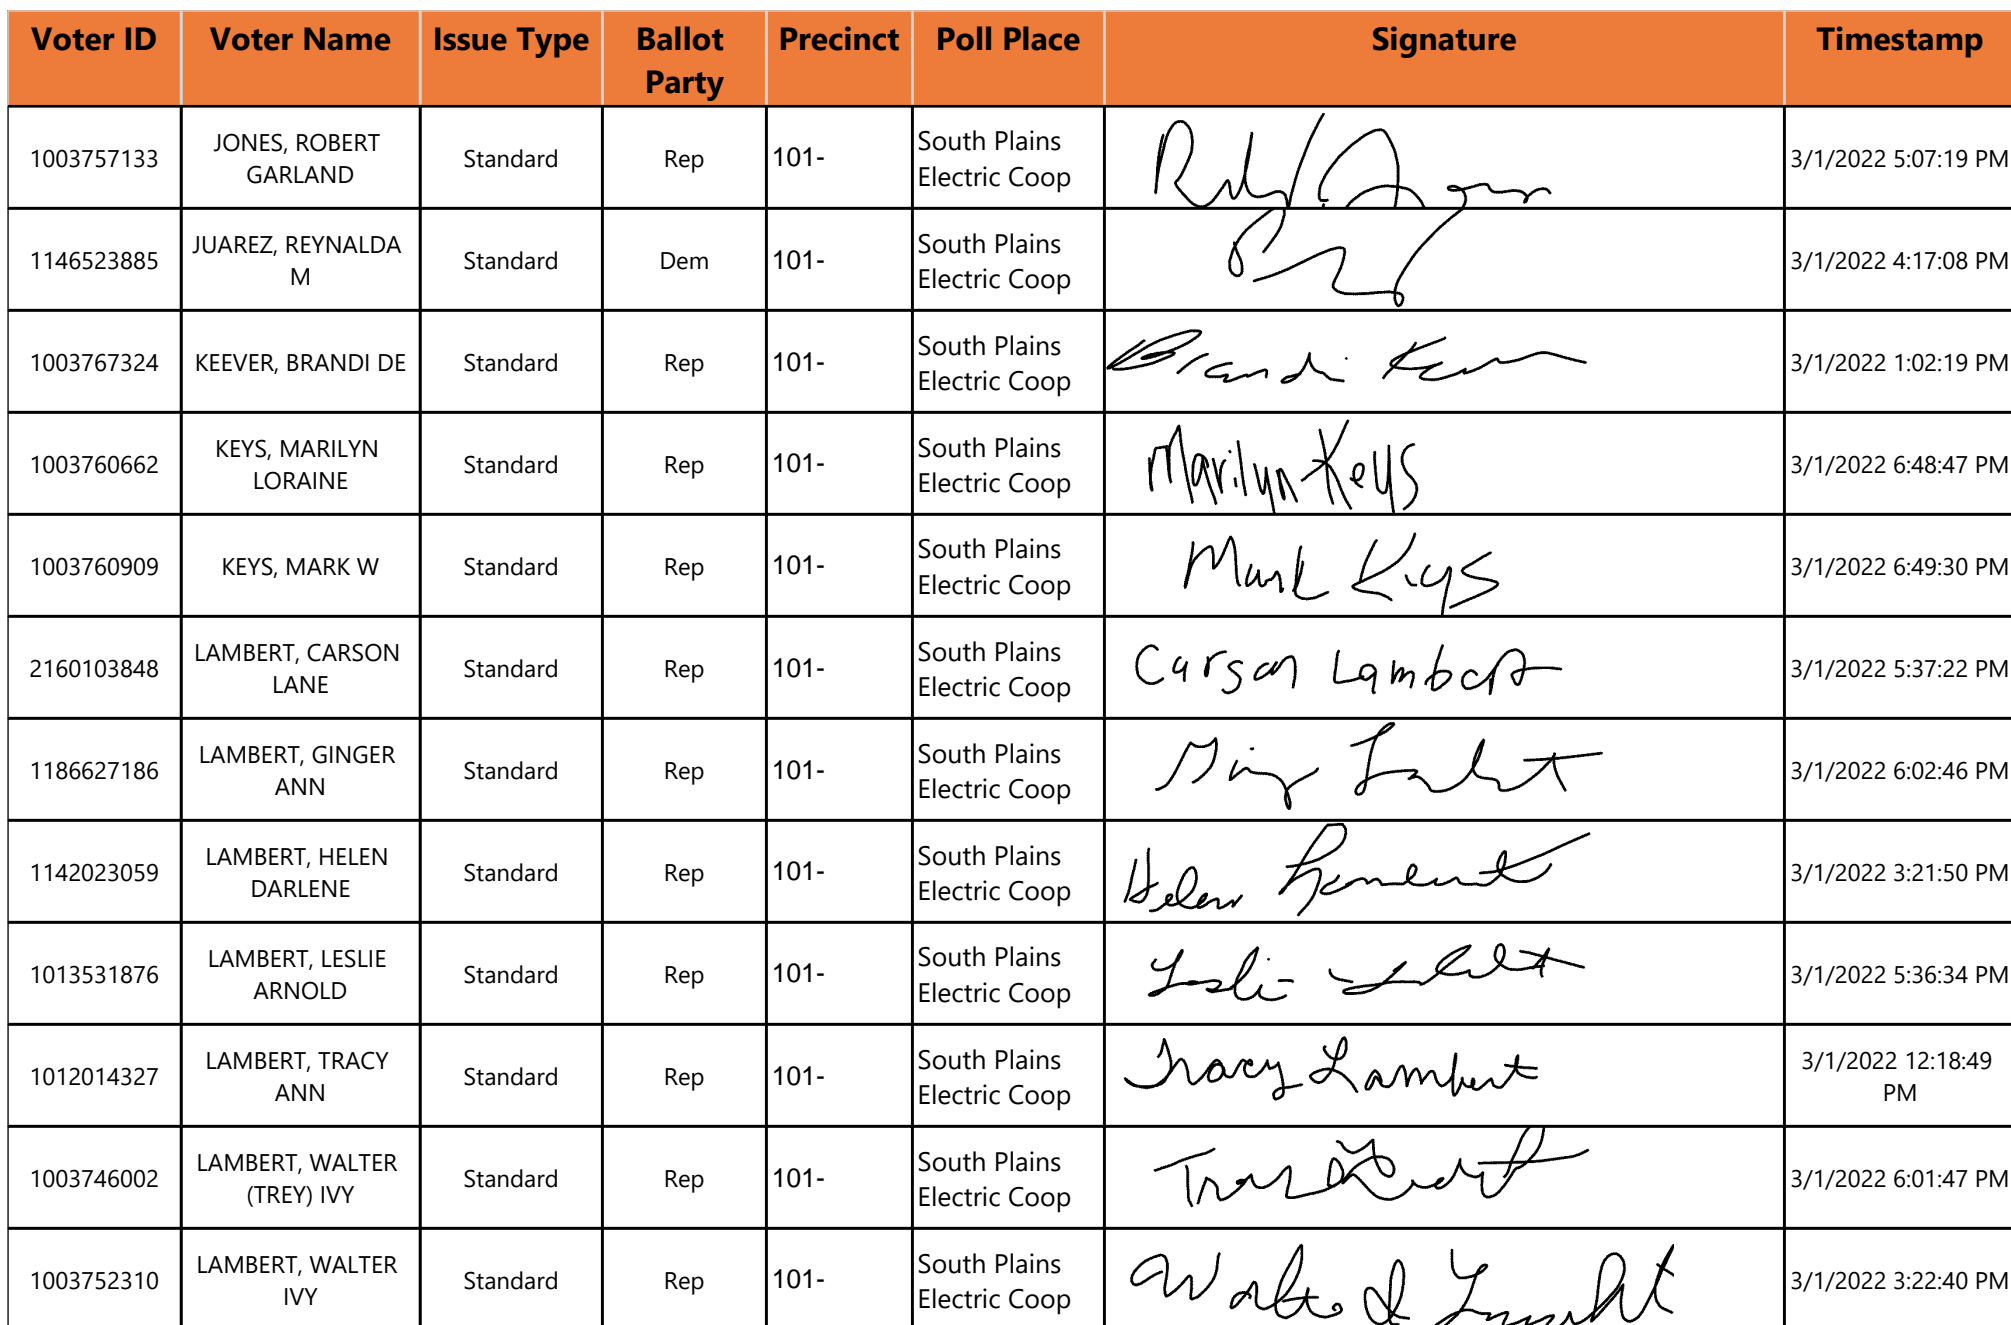 Voter ID Voter Name Issue Type Ballot Party Precinct Poll Place Signature Timestamp
1003757133 JONES, ROBERT GARLAND Standard Rep 101- South Plains Electric Coop 3/1/2022 5:07:19 PM
1146523885 JUAREZ, REYNALDA M Standard Dem 101- South Plains Electric Coop 3/1/2022 4:17:08 PM
1003767324 KEEVER, BRANDI DE Standard Rep 101- South Plains Electric Coop Brandi 3/1/2022 1:02:19 PM
1003760662 KEYS, MARILYN LORAINE Standard Rep 101- South Plains Electric Coop Marilyn Keys 3/1/2022 6:48:47 PM
1003760909 KEYS, MARK W Standard Rep 101- South Plains Electric Coop Mark Keys 3/1/2022 6:49:30 PM
2160103848 LAMBERT, CARSON LANE Standard Rep 101- South Plains Electric Coop Carson Lambert 3/1/2022 5:37:22 PM
1186627186 LAMBERT, GINGER ANN Standard Rep 101- South Plains Electric Coop 3/1/2022 6:02:46 PM
1142023059 LAMBERT, HELEN DARLENE Standard Rep 101- South Plains Electric Coop Helen Lambert 3/1/2022 3:21:50 PM
1013531876 LAMBERT, LESLIE ARNOLD Standard Rep 101- South Plains Electric Coop Leslie Lambert 3/1/2022 5:36:34 PM
1012014327 LAMBERT, TRACY ANN Standard Rep 101- South Plains Electric Coop Tracy Lambert 3/1/2022 12:18:49 PM
1003746002 LAMBERT, WALTER (TREY) IVY Standard Rep 101- South Plains Electric Coop 3/1/2022 6:01:47 PM
1003752310 LAMBERT, WALTER IVY Standard Rep 101- South Plains Electric Coop Walter I Lambert 3/1/2022 3:22:40 PM